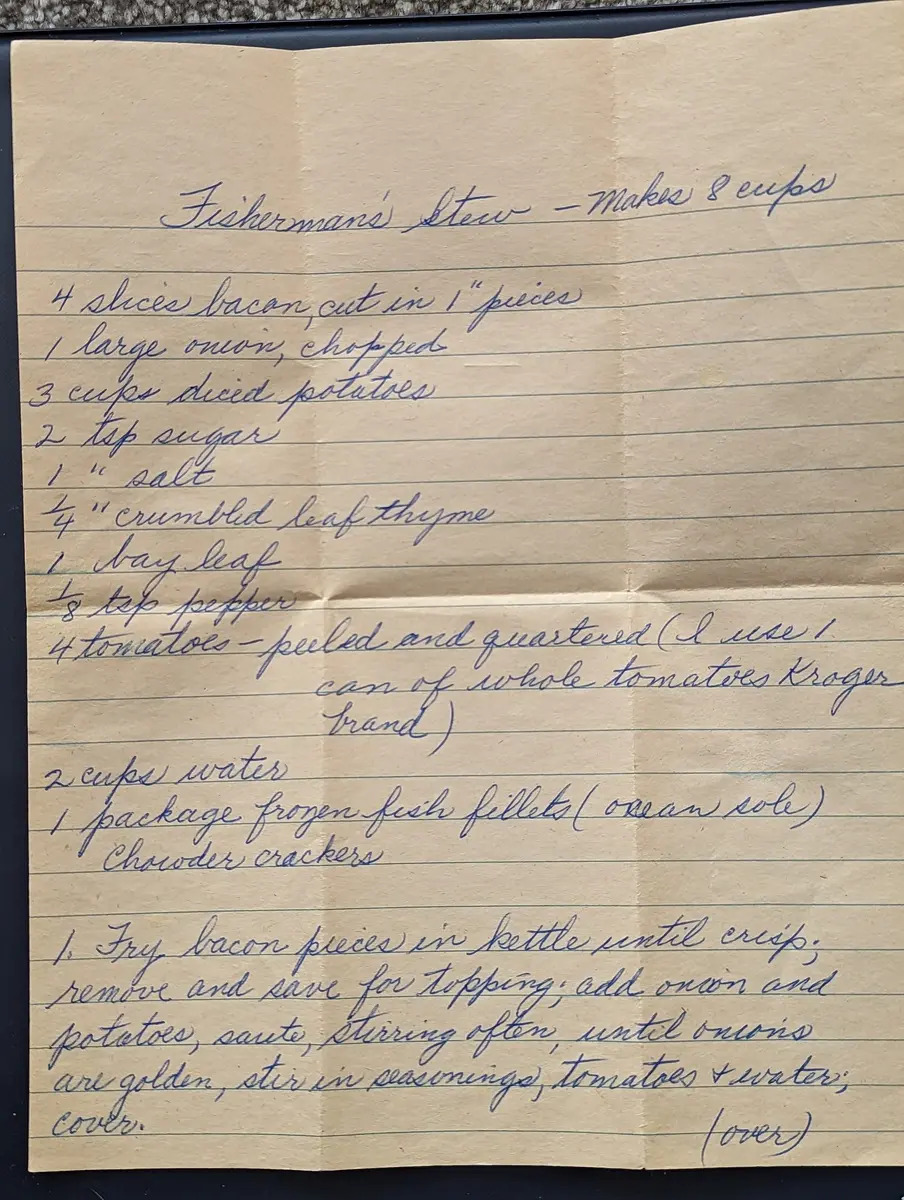 Fisherman's Stew - Makes 8 cups
4 slices bacon, cut in 1" pieces
1 large onion, chopped
3 cups diced potatoes
2 tsp sugar
1 " salt
1/4 " crumbled leaf thyme
1 bay leaf
1/8 tsp pepper
4 tomatoes - peeled and quartered (I use 1
can of whole tomatoes Kroger
brand)
2 cups water
1 package frozen fish fillets (ocean sole)
Chowder crackers
1. Fry bacon pieces in kettle until crisp;
remove and save for topping; add onion and
potatoes, saute, stirring often, until onions
are golden, stir in seasonings, tomatoes + water;
cover.
(over)